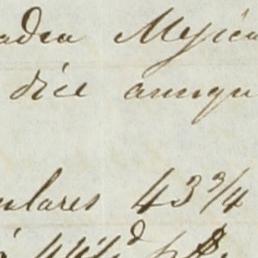 adea Mejica
dice aunqu
ulares 43 3/4
á 44 1/2 d p $.